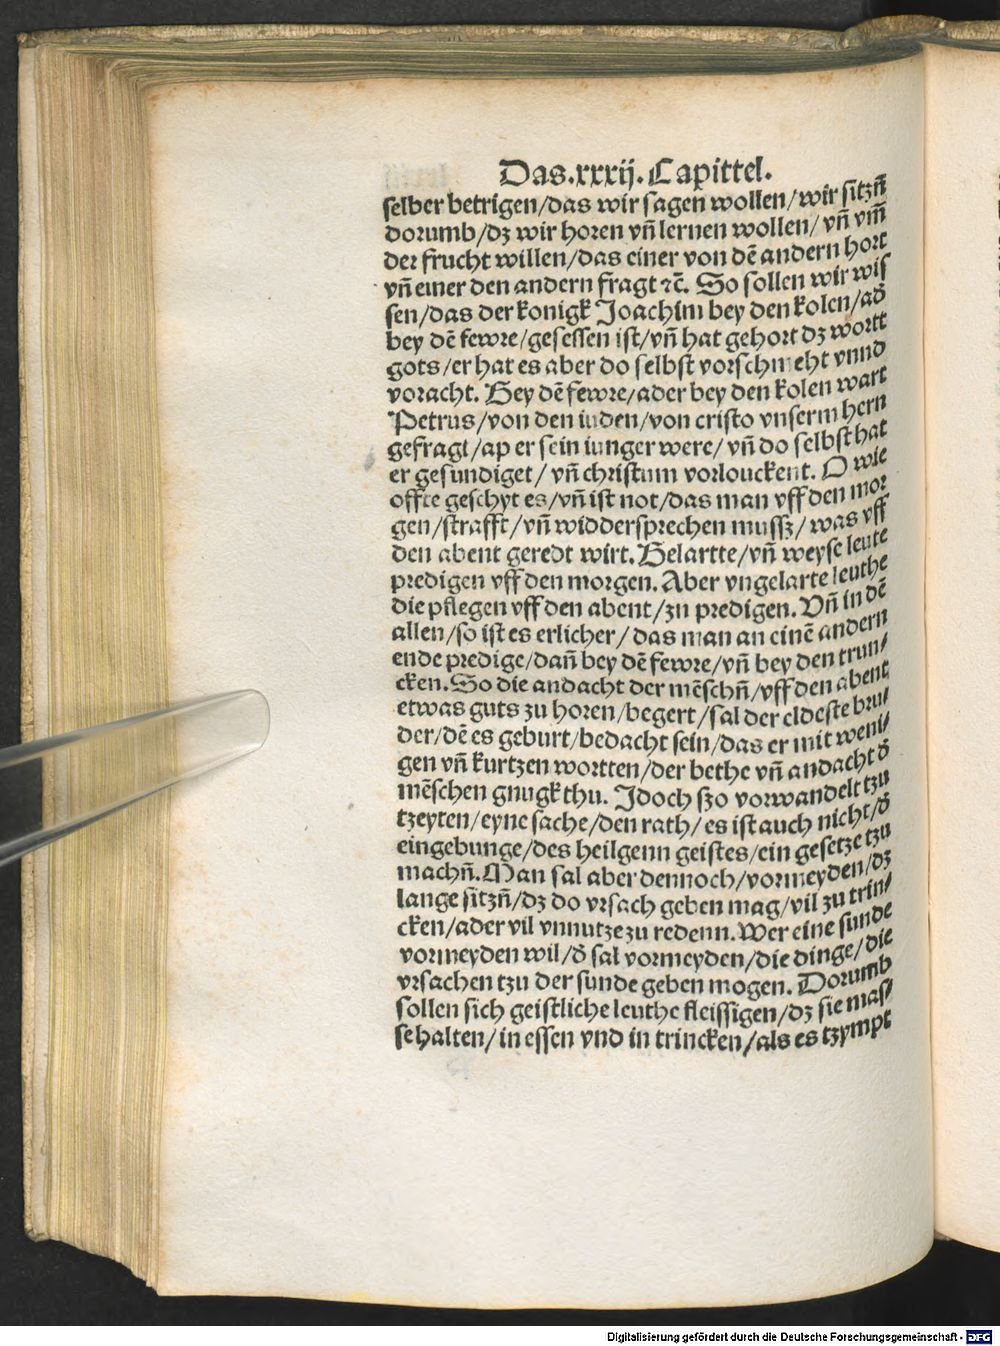 Das.xxxij.Capittel.
selber betrigen/das wir sagen wollen/wir sitzñ
dorumb/dz wir horen vñ lernen wollen/ vñ vm̃
der frucht willen/das einer von dẽ andern hort
vñ einer den andern fragt ⁊c̃. So sollen wir wis
sen/das der konigk Joachim bey den kolen/ad̃
bey dẽ fewre/gesessen ist/vñ hat gehort dz wortt
gots/er hat es aber do selbst vorschmeht vnnd
voracht. Bey dẽ fewre/ader bey den kolen wart
Petrus/von den iuden/von cristo vnserm hern
gefragt/ap er sein iunger were/ vñ do selbst hat
er gesundiget/ vñ christum vorlouckent. O wie
offte geschyt es/vñ ist not/das man vff den mor
gen/strafft/vñ widdersprechen mussz/ was vff
den abent geredt wirt. Gelartte/vñ weyse leute
predigen vff den morgen. Aber vngelarte leuthe
die pflegen vff den abent/zu predigen. Vñ in dẽ
allen/so ist es erlicher/ das man an einẽ andern
ende predige/dañ bey dẽ fewre/vñ bey den trun/
cken. So die andacht der mẽschñ/vff den abent
etwas guts zu horen/begert/sal der eldeste bru/
der/dẽ es geburt/bedacht sein/das er mit weni/
gen vñ kurtzen wortten/der bethe vñ andacht d̃
mẽschen gnugk thu. Jdoch szo vorwandelt tzu
tzeyten/eyne sache/den rath/ es ist auch nicht/d̃
eingebunge/des heilgenn geistes/ein gesetze tzu
machñ. Man sal aber dennoch/vormeyden/dz
lange sitzñ/dz do vrsach geben mag/vil zu trin/
cken/ader vil vnnutze zu redenn. Wer eine sunde
vormeyden wil/d̃ sal vormeyden/die dinge/die
vrsachen tzu der sunde geben mogen. Dorumb
sollen sich geistliche leuthe fleissigen/dz sie mas/
se halten/in essen vnd in trincken/als es tzympt
Digitalisierung gefördert durch die Deutsche Forschungsgemeinschaft - DFG